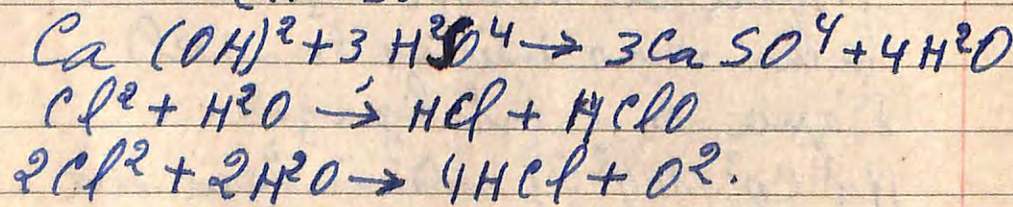 Ca (OH)² + 3 H²SO⁴ → 3Ca SO⁴ + 4H²O
Cl² + H²O → HCl + HClO
2Cl² + 2H²O → 4HCl + O².